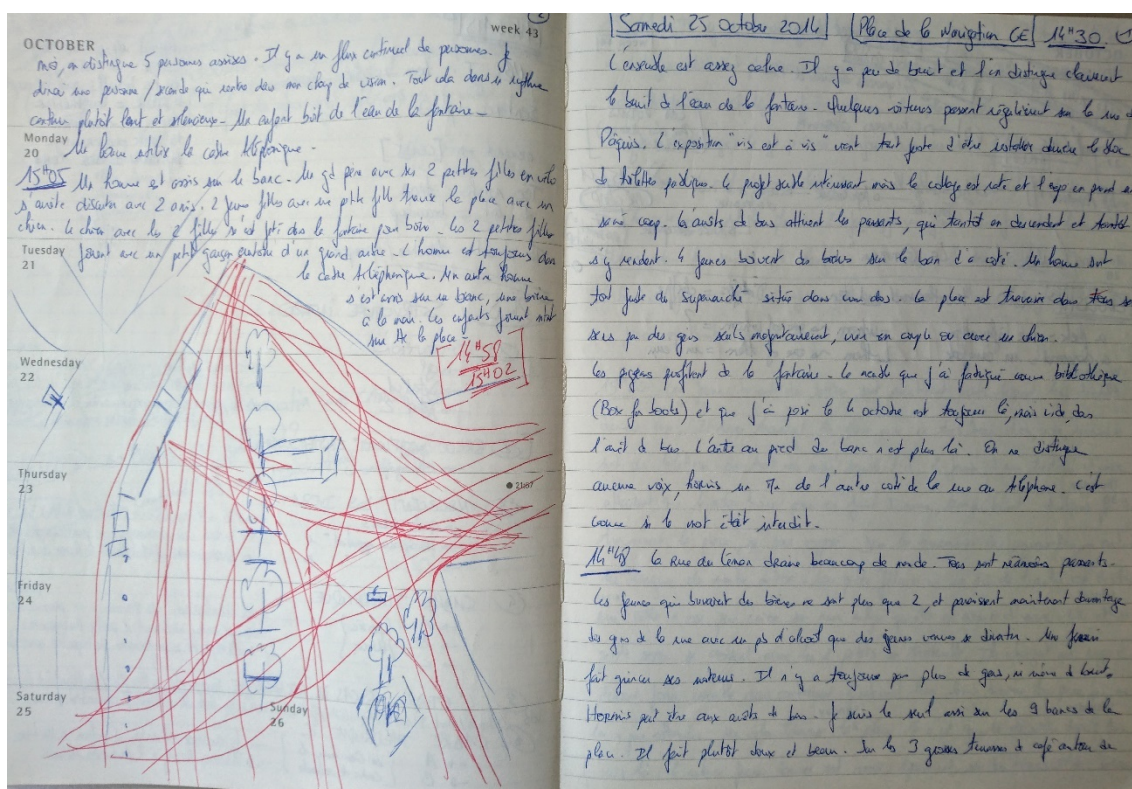 OCTOBER
week 43
2
moi, on distingue 5 personnes assises. Il y a un flux continuel de personnes. Je
dirai une personne / seconde qui rentre dans mon champ de vision. Tout cela dans un rythme
certain plutôt lent et silencieux. Un enfant boit de l'eau de la fontaine -
Monday
20
Un homme utilise la cabine téléphonique.
15H05 Un homme est assis sur le banc. Un gd père avec ses 2 petites filles en vélo
s'arrête discuter avec 2 amis. 2 jeunes filles avec une ptite fille traverse la place avec un
chien. Le chien avec les 2 filles s'est jeté dans la fontaine pour boire. Les 2 petites filles
Tuesday
21
jouent avec un petit garçon autour d'un grand arbre. L'homme est toujours dans
la cabine téléphonique. Un autre homme
s'est assis sur un banc, une bière
à la main. Les enfants jouent
sur la place -
14H58
15H02
Wednesday
22
Thursday
23
21:57
Friday
24
Saturday
25
Sunday
26
Samedi 25 Octobre 2014 Place de la Navigation GE 14H30 1
L'ensemble est assez calme. Il y a peu de bruit et l'on distingue clairement
le bruit de l'eau de la fontaine. Quelques voitures passent régulièrement sur la rue d
Pâquis. L'exposition "vis est à vis" vient tout juste d'être installer derrière le bloc
de toilettes publiques. Le projet semble intéressant mais le collage est raté et l'expo en prend
sacré coup. Les arrêts de bus attirent les passants, qui tantôt en descendent et tantôt
s'y rendent. 4 jeunes boivent des bières sur le banc d'à coté. Un homme sort
tout juste du supermarché située dans mon dos. La place est traversée dans tous
sens par des gens seuls majoritairement, voir en couple ou avec un chien.
Les pigeons profitent de la fontaine. Le meuble que j'ai fabriqué comme bibliothèque
(Box for books) et que j'ai posé le 4 octobre est toujours là, mais vide, dans
l'arrêt de bus. L'autre au pied du banc n'est plus là. On ne distingue
aucune voix, hormis un de l'autre coté de la rue au téléphone. C'est
comme si le mot était interdit.
14H48 La Rue du Léman draine beaucoup de monde. Tous sont néanmoins passants.
Les jeunes qui buvaient des bières ne sont plus que 2, et paraissent maintenant davantage
des gens de la rue avec un pb d'alcool que des jeunes venus se divertir. Un
fait grincer ses. Il n'y a toujours pas plus de gens, ni même de bruit.
Hormis peut être aux arrêts de bus. Je suis le seul assis sur les 9 bancs de la
place. Il fait plutôt doux et beau. Sur les 3 grosses terrasses de café autour de